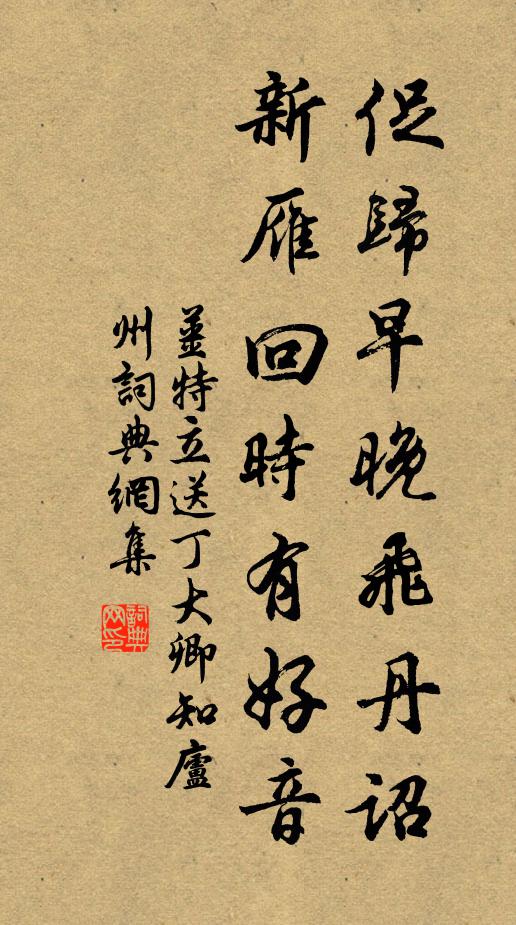 促歸早晚飛丹詔
新雁回時有好音
薑特立送丁大卿知廬
州詞典網集
詞典
网印